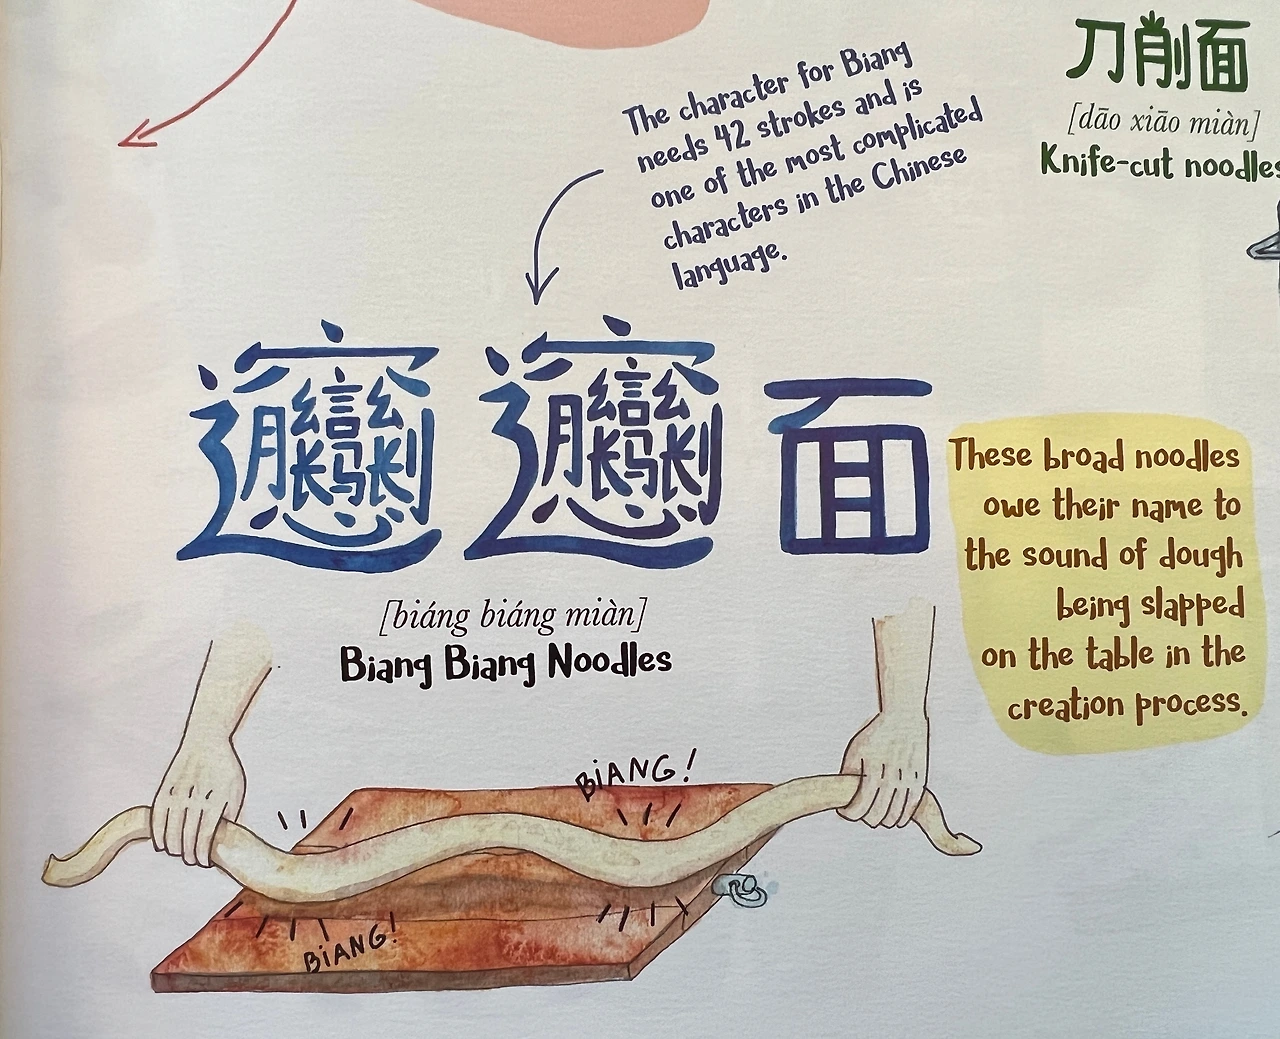 The character for Biang
needs 42 strokes and is
one of the most complicated
characters in the Chinese
language.
刀削面
[dāo xiāo miàn]
Knife-cut noodles
𰻝𰻝面
[biáng biáng miàn]
Biang Biang Noodles
These broad noodles
owe their name to
the sound of dough
being slapped
on the table in the
creation process.
BiANG!
BiANG!